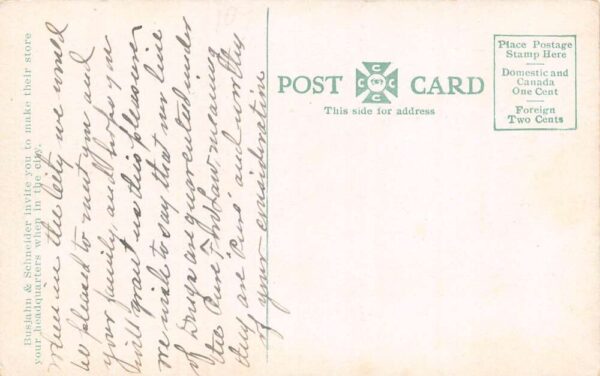 Busjahn & Schneider invite you to make their store
your headquarters when in the city.
When in the City we would
be pleased to meet you and
your family, and hope you
will grant us this pleasure
we wish to say that our line
of Drugs are guaranteed under
the Pure Food Law, meaning
they are Pure and worthy
of your consideration
POST CARD
This side for address
Place Postage
Stamp Here
Domestic and
Canada
One Cent
Foreign
Two Cents